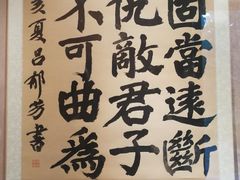 固當遠斷
仇敵君子
不可曲為
亥夏呂郁芳書